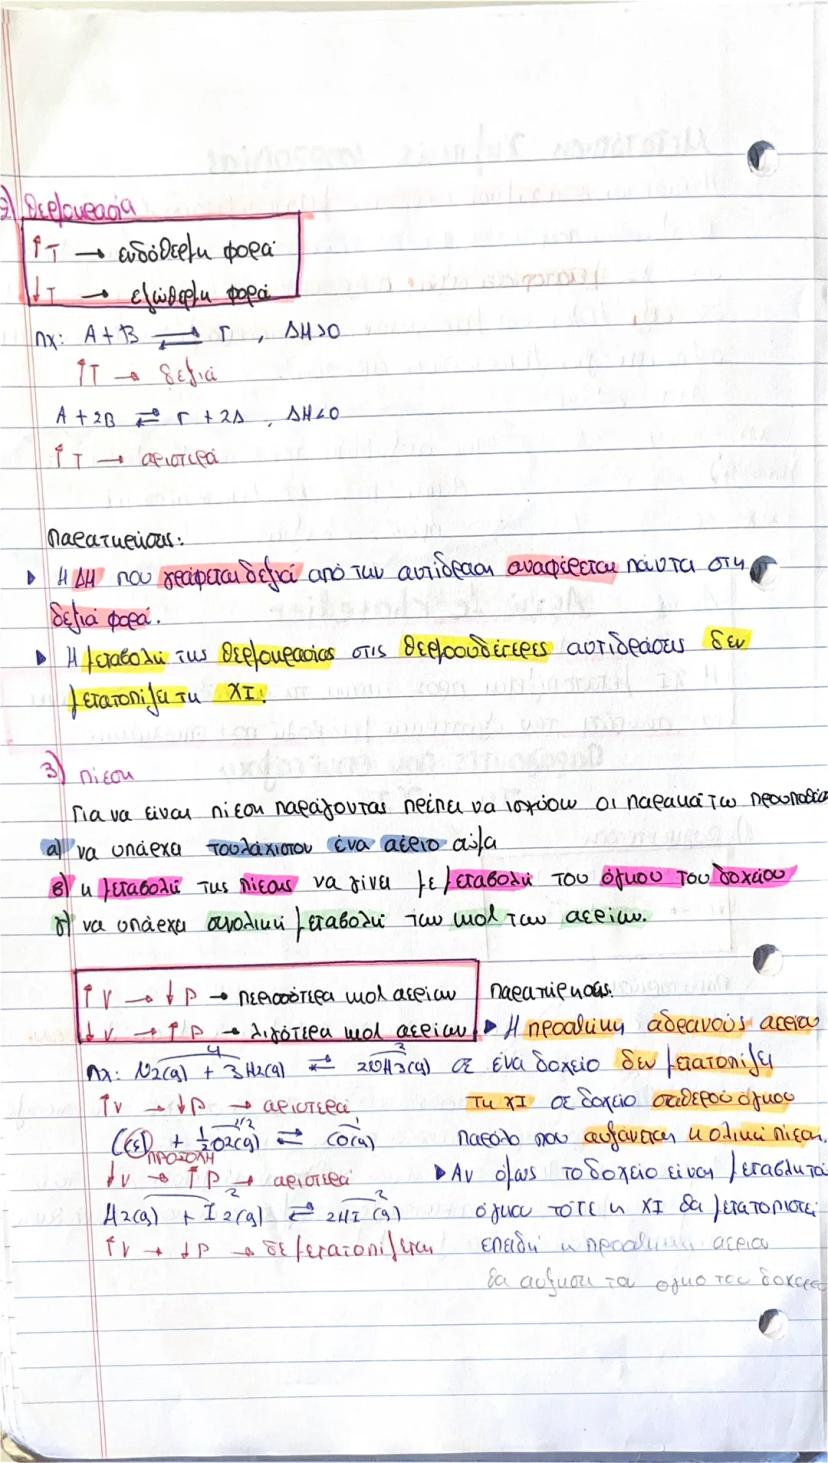 2) Θερμοκρασία
↑T → ενδόθερμη φορά
↓T → εξώθερμη φορά
πχ: A + B ⇌ Γ , ΔH>0
↑T → δεξιά
A + 2B ⇌ Γ + 2Δ , ΔH<0
↑T → αριστερά
Παρατηρήσεις:
▸ Η ΔΗ που γράφεται δεξιά από την αντίδραση αναφέρεται πάντα στη
δεξιά φορά.
▸ Η μεταβολή της θερμοκρασίας στις θερμοουδέτερες αντιδράσεις δεν
μετατοπίζει τη ΧΙ.
3) πίεση
Για να είναι πίεση παράγοντας πρέπει να ισχύουν οι παρακάτω προυποθέσ
α) να υπάρχει τουλάχιστον ένα αέριο σώμα
β) η μεταβολή της πίεσης να γίνει με μεταβολή του όγκου του δοχείου
γ) να υπάρχει συνολική μεταβολή των mol των αερίων.
↑V → ↓P → περισσότερα mol αερίων
↓V → ↑P → λιγότερα mol αερίων
πχ: N2(g) + 3H2(g) ⇌ 2NH3(g)
4 2
↑V → ↓P → αριστερά
C(s) + 1/2 O2(g) ⇌ CO(g)
1/2 1
ΠΡΟΣΟΧΗ
↓V → ↑P → αριστερά
H2(g) + I2(g) ⇌ 2HI(g)
2 2
↑V → ↓P → δε μετατοπίζεται
Παρατηρήσεις:
▸ Η προσθήκη αδρανούς αερίου
σε ένα δοχείο δεν μετατοπίζει
τη ΧΙ σε δοχείο σταθερού όγκου
παρόλο που αυξάνεται η ολική πίεση.
▸ Αν όμως το δοχείο είναι μεταβλητό
όγκου τότε η ΧΙ θα μετατοπιστεί
επειδή η προσθήκη αεριου
θα αυξηση το ογκο του δοχειο